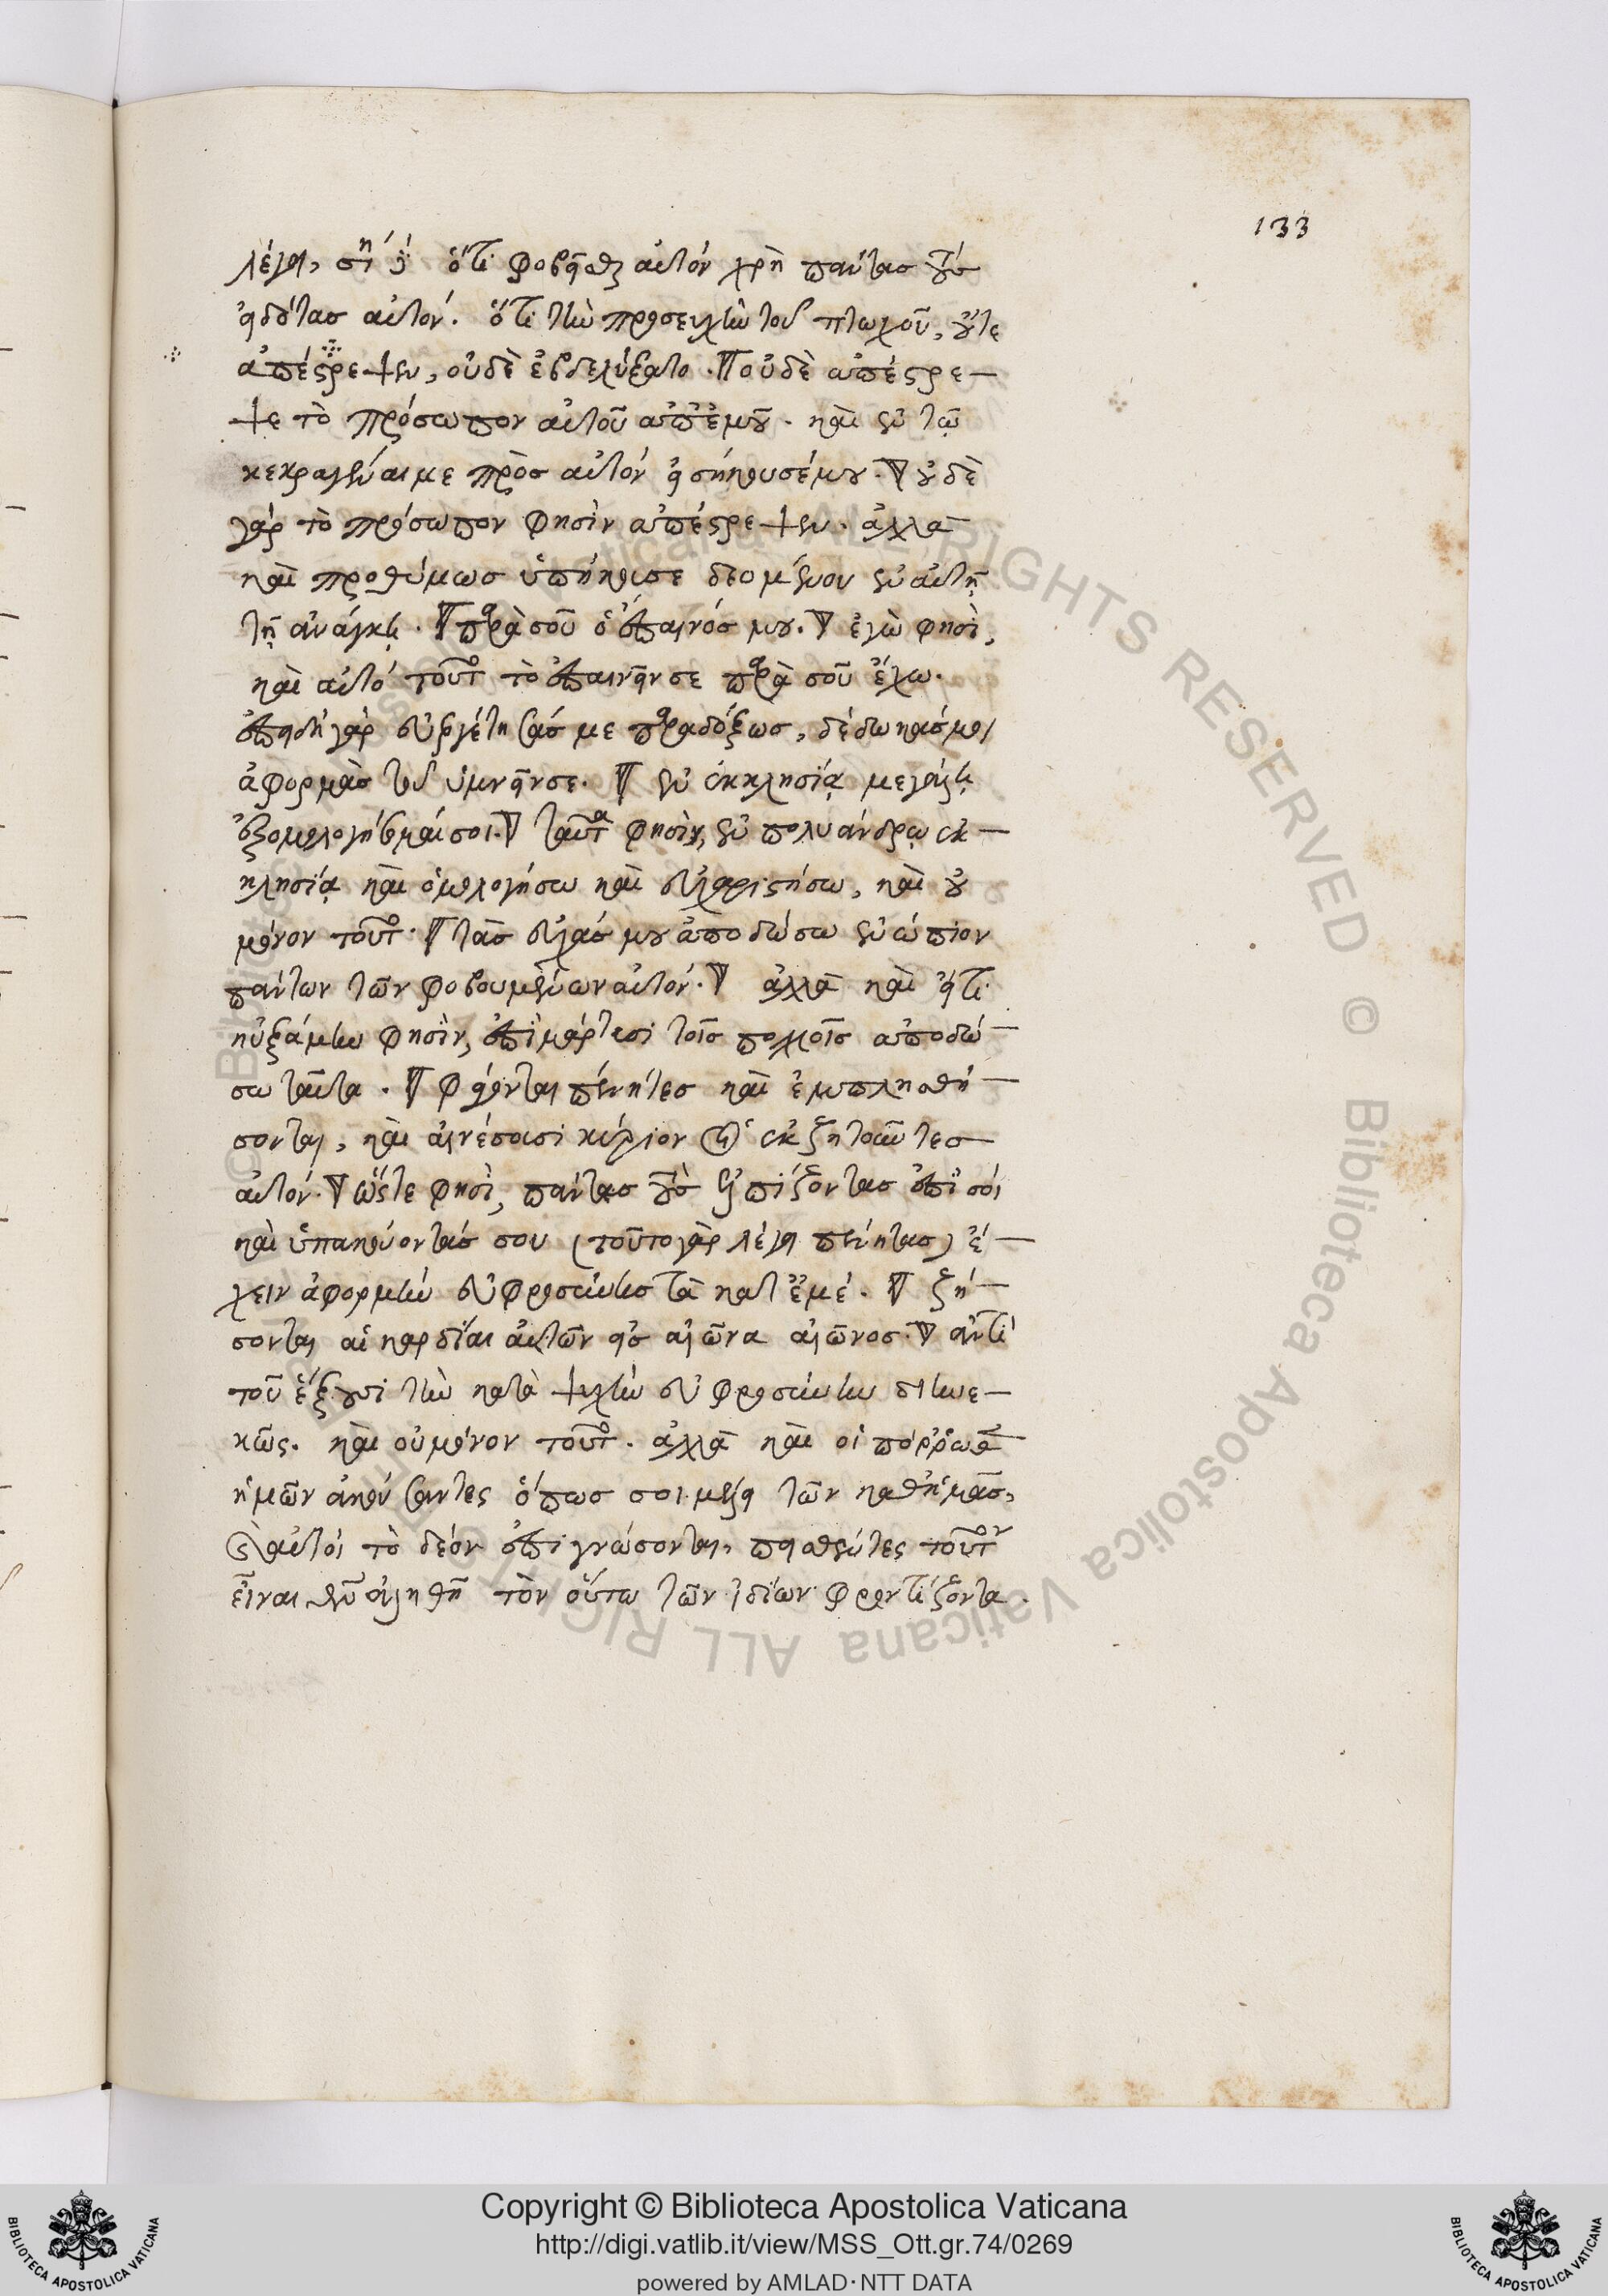 133
λέγει, ὅτι φοβεῖσθαι αὐτὸν χρὴ πάντας τοὺς
εἰδότας αὐτόν. ὅτι τὴν προσευχὴν τοῦ πτωχοῦ, οὔτε
ἀπέστρεψεν, οὐδὲ ἐβδελύξατο. οὐδὲ ἀπέστρε-
ψε τὸ πρόσωπον αὐτοῦ ἀπ' ἐμοῦ. καὶ ἐν τῷ
κεκραγέναι με πρὸς αὐτὸν εἰσήκουσέ μου. οὐδὲ
γὰρ τὸ πρόσωπον φησὶν ἀπέστρεψεν. ἀλλὰ
καὶ προθύμως ὑπήκουσε δεομένου ἐν αὐτῇ
τῇ ἀνάγκῃ. παρὰ σοῦ ὁ ἔπαινός μου. ἐγὼ φησὶ,
καὶ αὐτὸ τοῦτο τὸ ἐπαινεῖν σε παρὰ σοῦ ἔχω.
ἐπειδὴ γὰρ εὐεργέτησάς με παραδόξως, δέδωκάς μοι
ἀφορμὰς τοῦ ὑμνεῖν σε. ἐν ἐκκλησίᾳ μεγάλῃ
ἐξομολογήσομαί σοι. ταῦτα φησὶν, ἐν πολυάνδρῳ ἐκ-
κλησίᾳ καὶ ὁμολογήσω καὶ εὐχαριστήσω, καὶ οὐ
μόνον τοῦτο. τὰς εὐχάς μου ἀποδώσω ἐνώπιον
πάντων τῶν φοβουμένων αὐτόν. ἀλλὰ καὶ εἴ τι
ηὐξάμην φησὶν, ἐπὶ μάρτυσι τοῖς πολλοῖς ἀποδώ-
σω ταῦτα. φάγονται πένητες καὶ ἐμπλησθή-
σονται, καὶ αἰνέσουσι κύριον οἱ ἐκζητοῦντες
αὐτόν. ὥστε φησὶ, πάντας τοὺς ἐλπίζοντας ἐπὶ σοὶ
καὶ ὑπακούοντάς σου (τοῦτο γὰρ λέγει πένητας) ἔ-
χειν ἀφορμὴν εὐφροσύνης τὰ κατ' ἐμέ. ζή-
σονται αἱ καρδίαι αὐτῶν εἰς αἰῶνα αἰῶνος. ἀντὶ
τοῦ ἕξουσι τὴν κατὰ ψυχὴν εὐφροσύνην διηνε-
κῶς. καὶ οὐ μόνον τοῦτο. ἀλλὰ καὶ οἱ πόρρωθεν
ἡμῶν ἀκούσαντες ὅπως σοι μέλει τῶν καθ' ἡμᾶς,
καὶ αὐτοὶ τὸ δέον ἐπιγνώσονται, πεισθέντες τοῦτον
εἶναι θεὸν ἀληθῆ τὸν οὕτω τῶν ἰδίων φροντίζοντα.
Copyright © Biblioteca Apostolica Vaticana
http://digi.vatlib.it/view/MSS_Ott.gr.74/0269
powered by AMLAD·NTT DATA